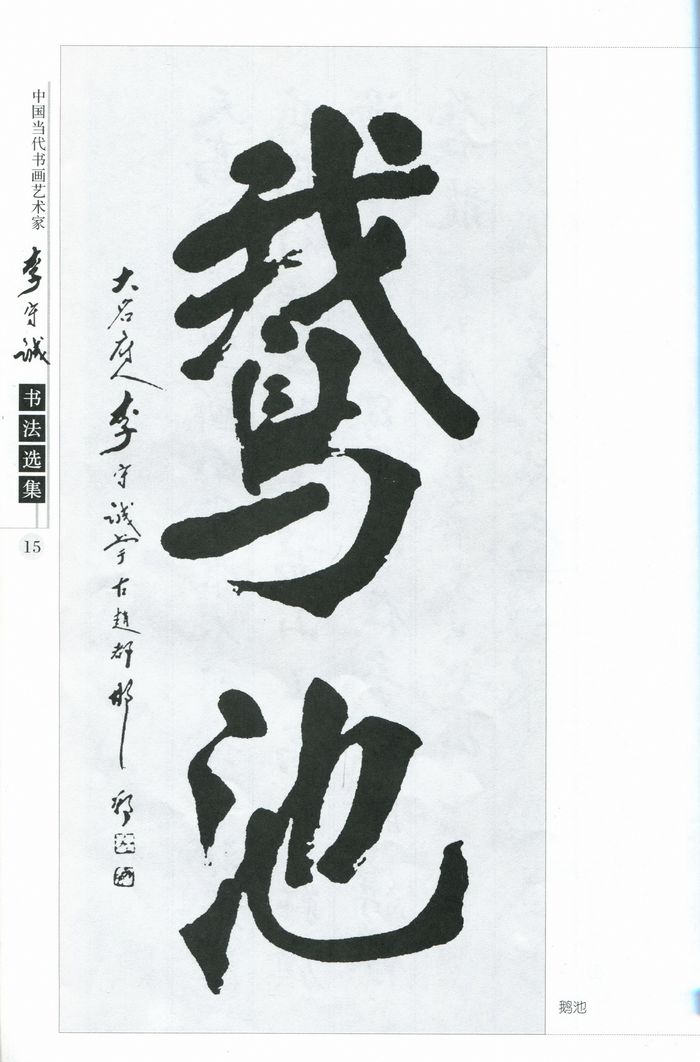 中国当代书画艺术家
李守诚
书法选集
15
鵞池
大名府人李守诚学古赵都邯郸
鹅池